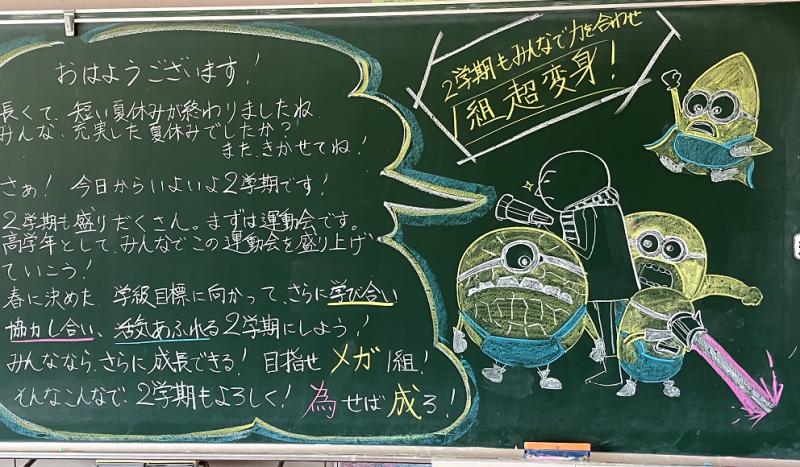 おはようございます!
長くて、短い夏休みが終わりましたね
みんな、充実した夏休みでしたか?
また、きかせてね!
さぁ! 今日からいよいよ2学期です!
2学期も盛りだくさん。まずは運動会です。
高学年として、みんなでこの運動会を盛り上げ
ていこう!
春に決めた、学級目標に向かって、さらに学び合い
協力し合い、活気あふれる2学期にしよう!
みんななら、さらに成長できる! 目指せ メガ1組!
そんなこんなで、2学期もよろしく! 為せば成る!
2学期もみんなで力を合わせ
1組 超変身!